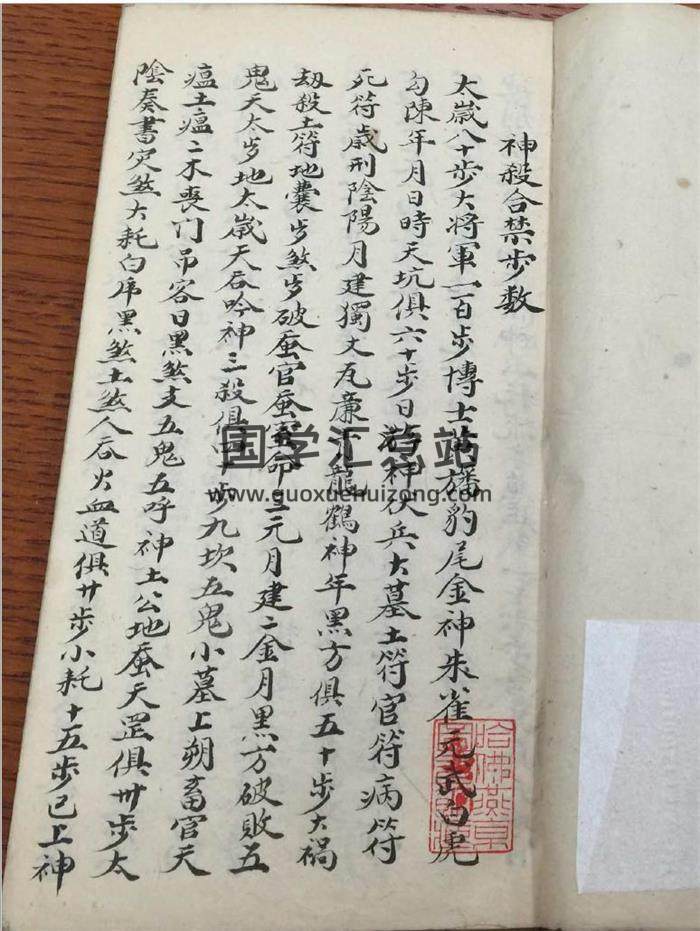 神殺合禁步数
太歲八十步大將軍一百步博士黄旛豹尾金神朱雀元武白虎
勾陳年月日時天坑俱六十步日遊神伏兵大墓土符官符病符
死符歲刑陰陽月建獨火瓦廉青龍鶴神年黑方俱五十步大禍
劫殺土符地囊步煞步破蚕官蚕命三元月建二金月黑方破敗五
鬼天太步地太歲天吞吟神三殺俱四十步九坎五鬼小墓上朔畜官天
瘟土瘟二木喪门吊客日黑煞支五鬼五呼神土公地蚕天罡俱卅步太
陰奏書灾煞大耗白虎黑煞土煞人吞火血道俱廿步小耗十五步已上神
哈佛燕京
国学汇总站
www.guoxuehuizong.com